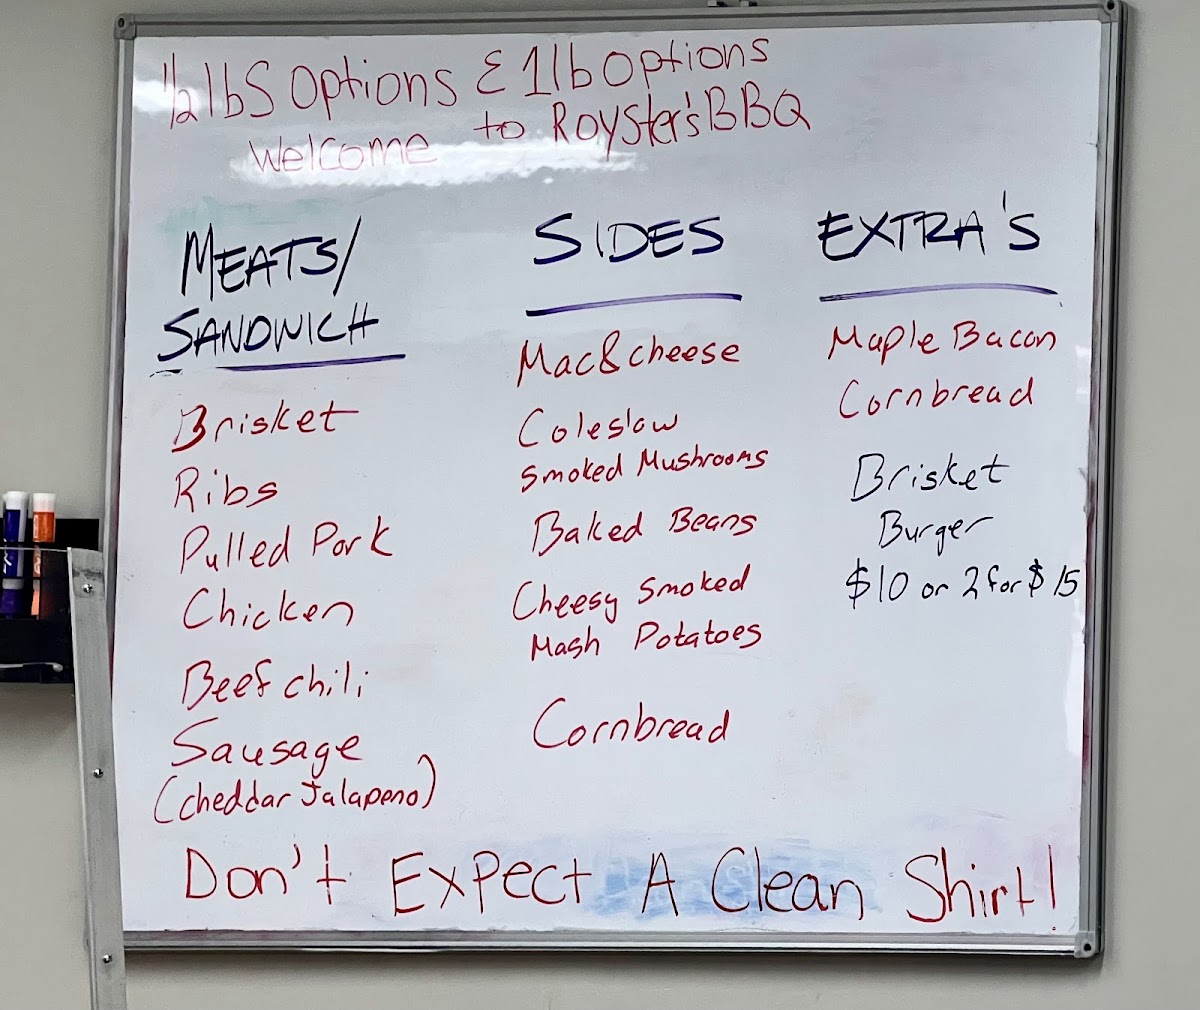 1/2 lbs Options & 1 lb Options
Welcome to Royster's BBQ
MEATS/
SANDWICH
Brisket
Ribs
Pulled Pork
Chicken
Beef chili
Sausage
(cheddar Jalapeno)
SIDES
Mac&cheese
Coleslaw
Smoked Mushrooms
Baked Beans
Cheesy Smoked
Mash Potatoes
Cornbread
EXTRA'S
Maple Bacon
Cornbread
Brisket
Burger
$10 or 2 for $15
Don't Expect A Clean Shirt!